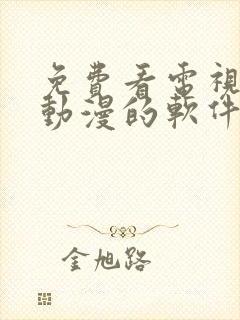 免費看電視
動漫的軟件
金旭路